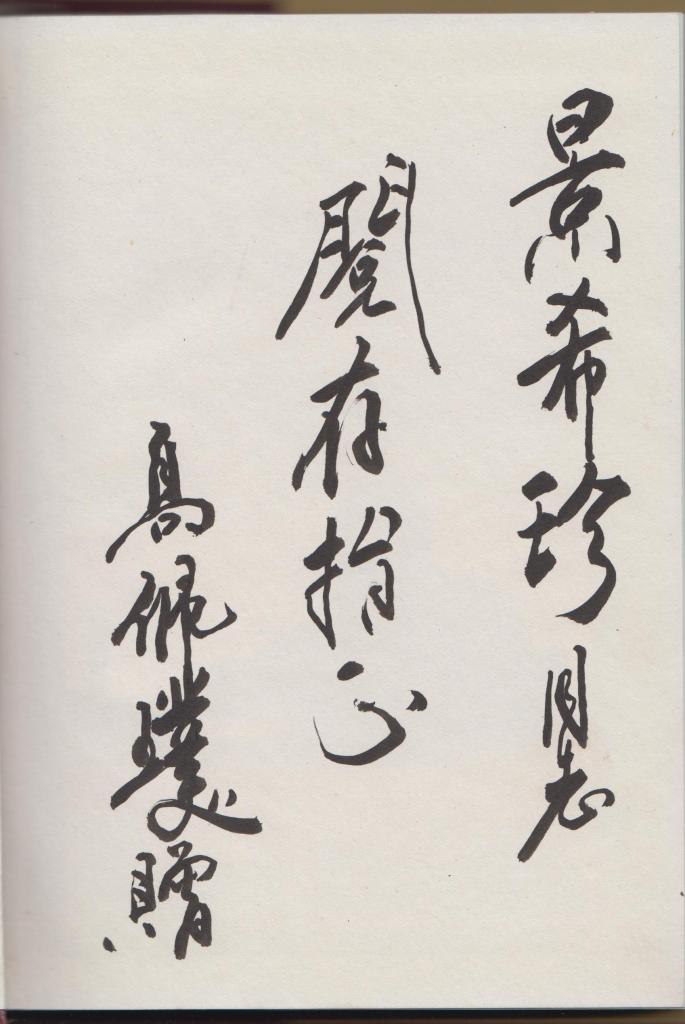 景希珍同志
閱存指正
高佩璞贈